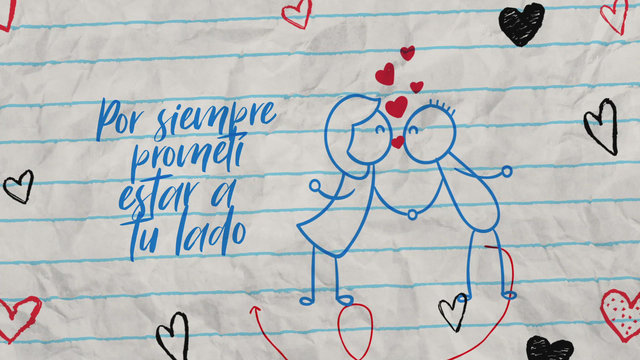 Por siempre
prometí
estar a
tu lado